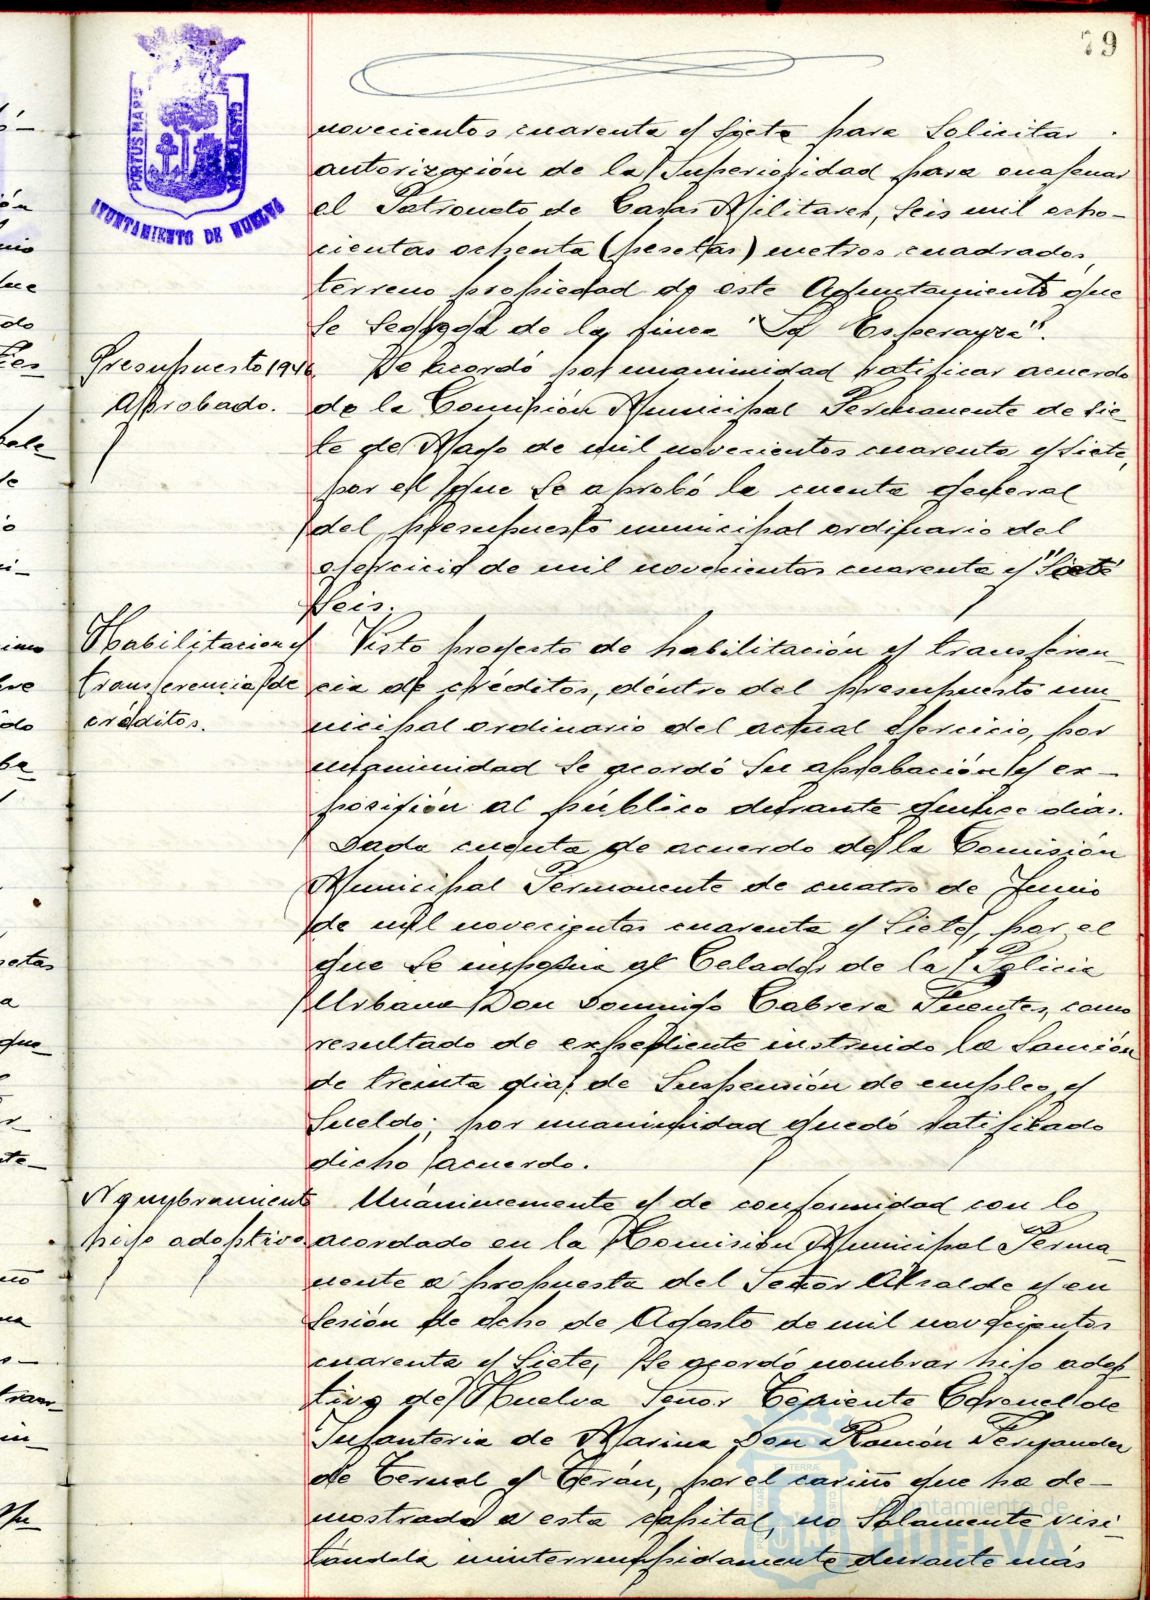 79
PORTUS MARIS
AYUNTAMIENTO DE HUELVA
novecientos cuarenta y siete para Solicitar
autorización de la Superioridad para enajenar
el Patronato de Casas Militares, Seis mil ocho-
cientas ochenta (pesetas) metros cuadrados,
terreno propiedad de este Ayuntamiento que
se segrega de la finca "La Esperanza".
Presupuesto 1946.
Aprobado.
Se acordó por unanimidad ratificar acuerdo
de la Comisión Municipal Permanente de sie-
te de Mayo de mil novecientos cuarenta y Siete,
por el que se aprobó la cuenta general
del presupuesto municipal ordinario del
ejercicio de mil novecientos cuarenta y "Siete"
Seis.
Habilitacion y
transferencia de
créditos.
Visto proyecto de habilitación y transferen-
cia de créditos, déntro del presupuesto mu-
nicipal ordinario del actual ejercicio, por
unanimidad se acordó su aprobación y ex-
posición al público durante quince dias.
Dada cuenta de acuerdo de la Comisión
Municipal Permanente de cuatro de Junio
de mil novecientos cuarenta y Siete, por el
que se imponia al Celador de la Policia
Urbana Don Domingo Cabrera Fuentes, como
resultado de expediente instruido la Sanción
de treinta dias de Suspensión de empleo y
Sueldo; por unanimidad quedó ratificado
dicho acuerdo.
Nombramiento
hijo adoptivo
Unánimemente y de conformidad con lo
acordado en la Comisión Municipal Perma-
nente a propuesta del Señor Alcalde y en
Sesión de ocho de Agosto de mil novecientos
cuarenta y Siete, se acordó nombrar hijo adop
tivo de Huelva Señor Teniente Coronel de
Infanteria de Marina Don Ramón Fernandez
de Teruel y Terán, por el cariño que ha de-
mostrado a esta capital, no Solamente visi-
tandola ininterrumpidamente durante más
Ayuntamiento de
HUELVA